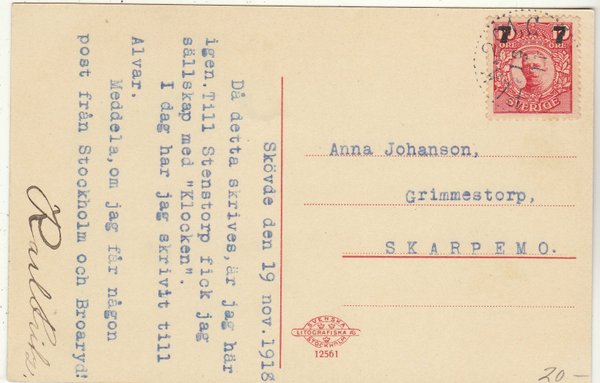 Skövde den 19 nov. 1918
Då detta skrives, är jag här
igen. Till Stenstorp fick jag
sällskap med "Klocken".
I dag har jag skrivit till
Alvar.
Meddela, om jag får någon
post från Stockholm och Broaryd!
7 7
ÖRE ÖRE
SVERIGE
Anna Johanson,
Grimmestorp,
SKARPEMO.
SVENSKA
LITOGRAFISKA AB
STOCKHOLM
12561
20-